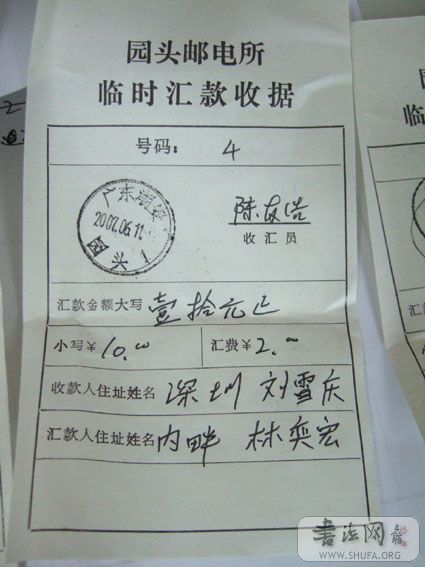 园头邮电所
临时汇款收据
号码: 4
广东潮安
2007.06.11
园头
陈友浩
收汇员
汇款金额大写 壹拾元正
小写¥ 10.00 汇费¥ 2.00
收款人住址姓名 深圳 刘雪庆
汇款人住址姓名 内畔 林奕宏
书法网
WWW.SHUFA.ORG